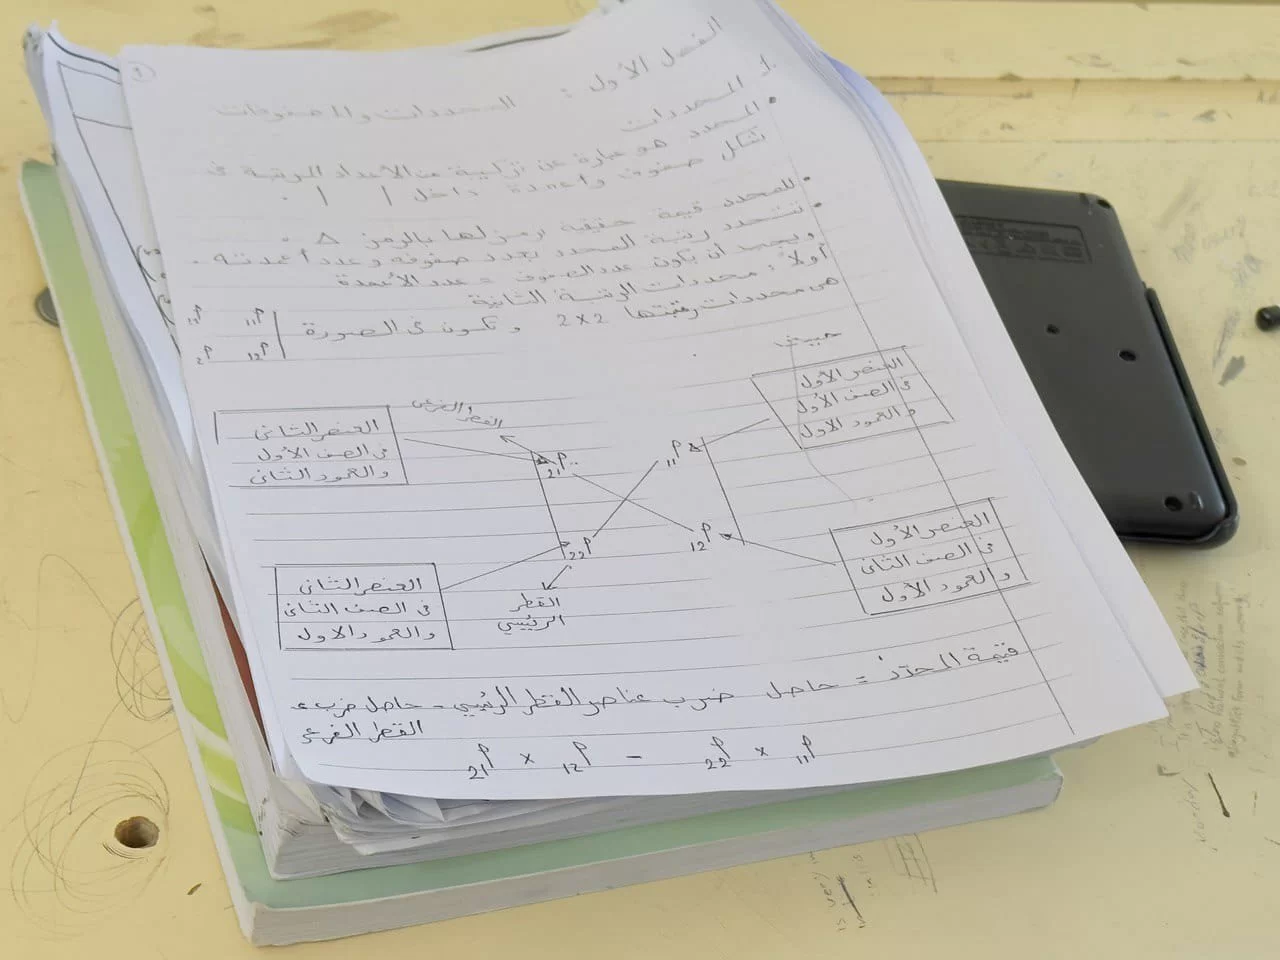 ١
الفصل الأول : المحددات والمصفوفات
1. المحددات
• المحدد هو عبارة عن تركيبة من الأعداد المرتبة في
شكل صفوف واعمدة داخل | | .
• للمحدد قيمة حقيقية يرمز لها بالرمز Δ .
• تتحدد رتبة المحدد بعدد صفوفه وعدد أعمدته .
ويجب أن يكون عدد الصفوف = عدد الأعمدة
أولاً : محددات الرتبة الثانية
هي محددات رتبتها 2×2 وتكون في الصورة
م11 م12
م12 م2
حيث
العنصر الأول
في الصف الأول
و العمود الأول
القطر الفرعي
العنصر الثاني
في الصف الأول
والعمود الثاني
م11 م21
م12 م22
العنصر الأول
في الصف الثاني
و العمود الأول
العنصر الثاني
في الصف الثاني
والعمود الاول
القطر
الرئيسي
قيمة المحدد = حاصل ضرب عناصر القطر الرئيسي - حاصل ضرب ع
القطر الفرعي
م11 × م22 - م12 × م21